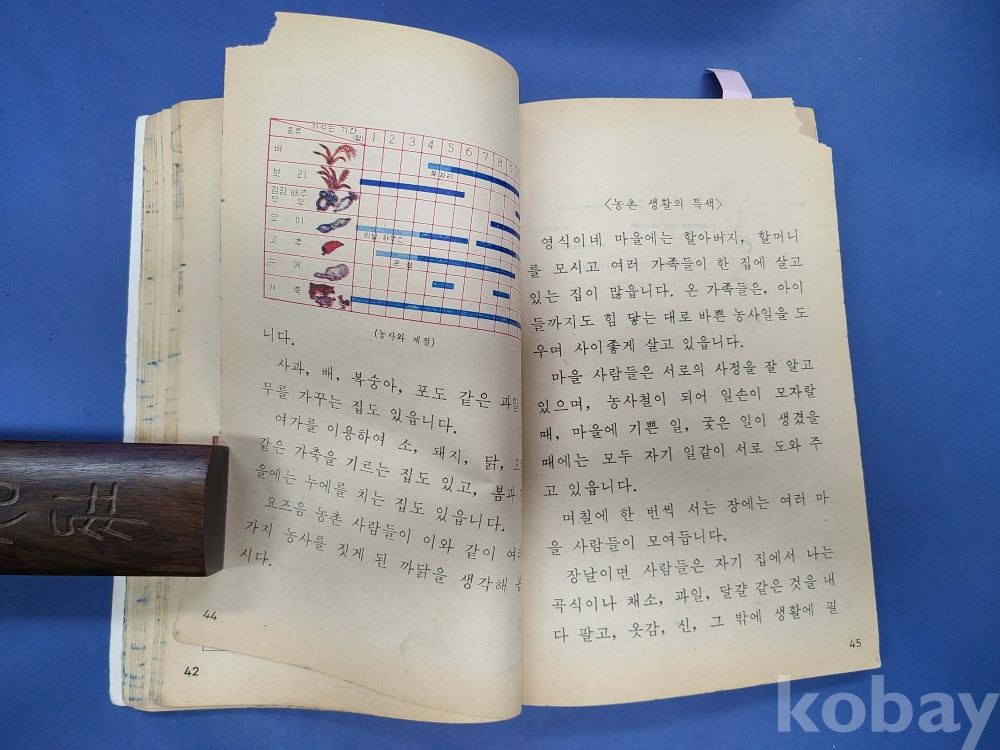 종류 가꾸는 기간 (월) 1 2 3 4 5 6 7 8 9
벼
못자리
보리
김장 배추
무우
오이
비닐 하우스
고추
온실
누에
가축
(농사와 계절)
니다.
사과, 배, 복숭아, 포도 같은 과일
무를 가꾸는 집도 있읍니다.
여가를 이용하여 소, 돼지, 닭,
같은 가축을 기르는 집도 있고, 봄과
을에는 누에를 치는 집도 있읍니다.
요즈음 농촌 사람들이 이와 같이 여러
가지 농사를 짓게 된 까닭을 생각해
시다.
44
42
〈농촌 생활의 특색〉
영식이네 마을에는 할아버지, 할머니
를 모시고 여러 가족들이 한 집에 살고
있는 집이 많읍니다. 온 가족들은, 아이
들까지도 힘 닿는 대로 바쁜 농사일을 도
우며 사이좋게 살고 있읍니다.
마을 사람들은 서로의 사정을 잘 알고
있으며, 농사철이 되어 일손이 모자랄
때, 마을에 기쁜 일, 궂은 일이 생겼을
때에는 모두 자기 일같이 서로 도와 주
고 있읍니다.
며칠에 한 번씩 서는 장에는 여러 마
을 사람들이 모여듭니다.
장날이면 사람들은 자기 집에서 나는
곡식이나 채소, 과일, 달걀 같은 것을 내
다 팔고, 옷감, 신, 그 밖에 생활에 필
45
kobay